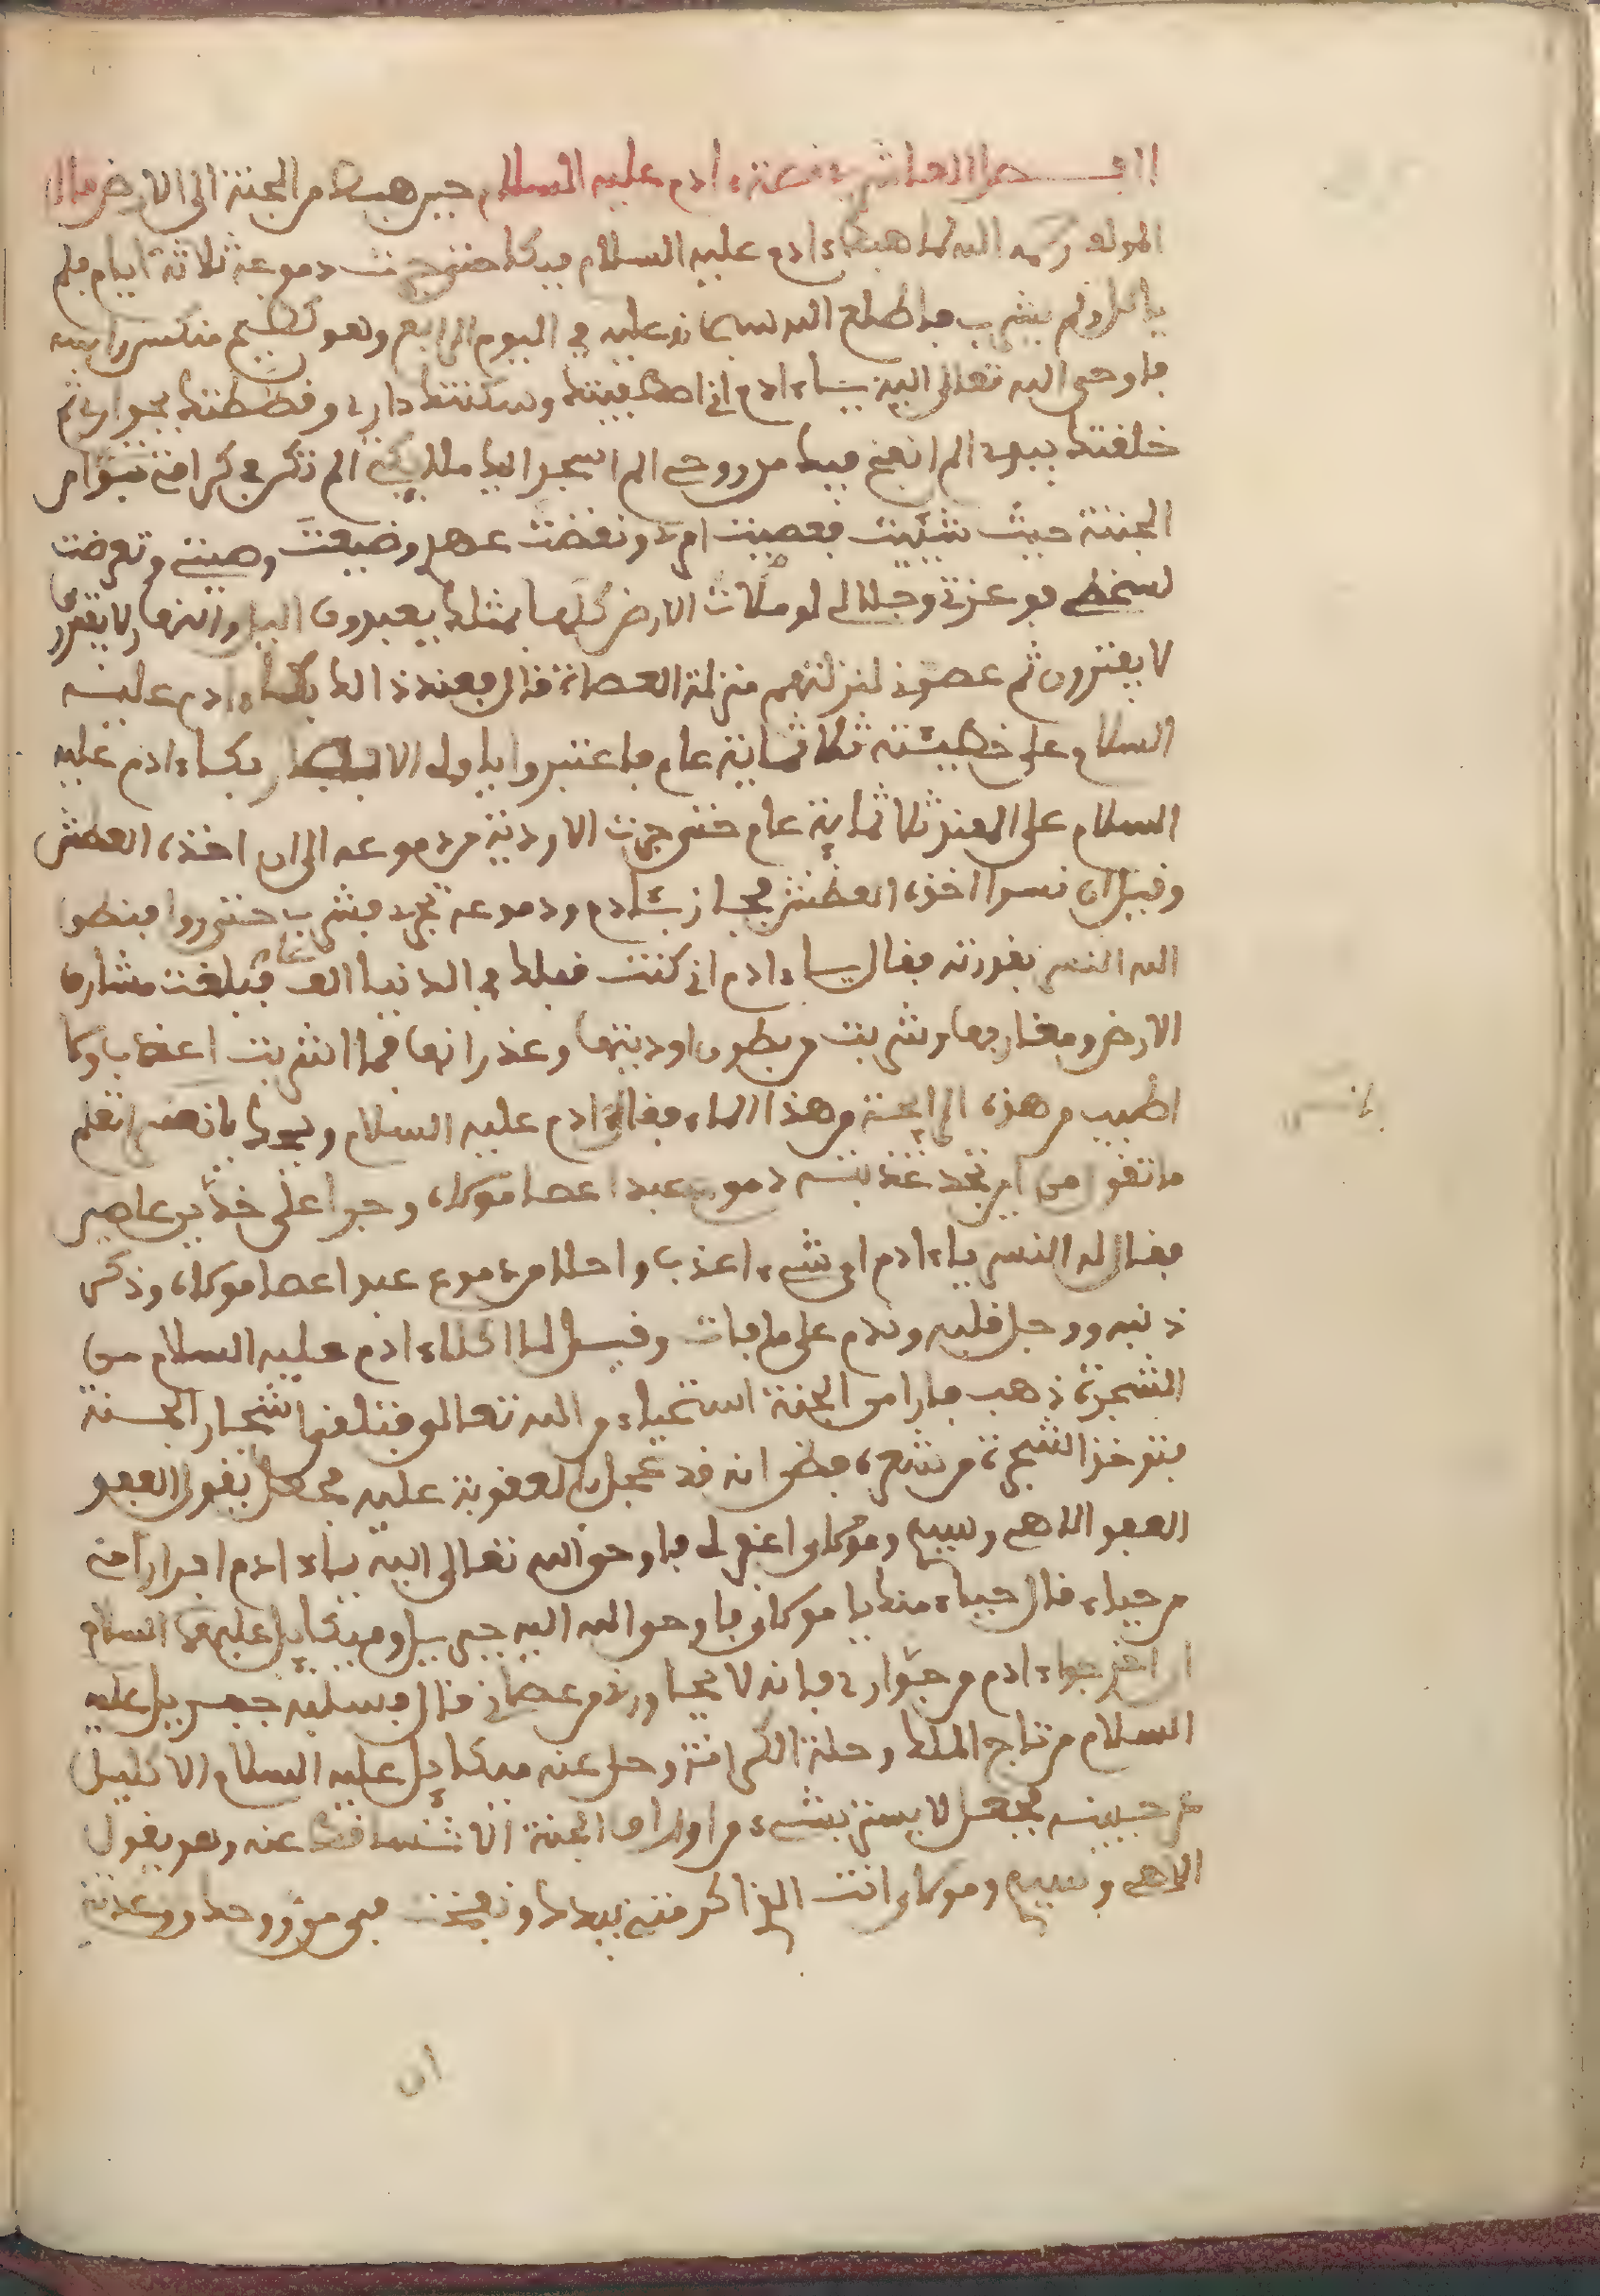 الفصل العاشر في قصة ءادم عليه السلام حين هبط من الجنة الى الارض قال
المولف رحمه الله لما هبط ءادم عليه السلام فبكا حتى جرت دموعه ثلاثة ايام فلم
ياكل ولم يشرب فاطلع الله سبحانه عليه في اليوم الرابع وهو كظيم منكس راسه
فاوحى الله تعالى اليه يـاءادم اني اصطفيتك وسكنتك داري وخططتك بجواري ثم
خلقتك بيدي الم انفخ فيك من روحي الم اسجد اليك ملايكتي الم تكن في كرامتي تتبوا من
الجنة حيث شئيت فعصيت امري ونقضت عهدي وضيعت وصيتي وتعرضت
لسخطي فو عزتي وجلالي لو ملات الارض كلها مثلك يعبدون اليل والنهار لا يفترون
لا يفترون ثم عصوني لنزلتهم منزلة العصاة قال فعند ذالك بكاءادم عليه
السلام على خطيئته ثلاثماية عام فاعتبروا ياولى الابصار بكاءادم عليه
السلام على الهند ثلاثماية عام حتى جرت الاودية من دموعه الى ان اخذه العطش
وقيل ان نسرا اخذه العطش فجاز بئادم ودموعه تجري فيشرب حتى روا فنطق
الله النسر بقدرته فقال يـاءادم اني كنت قبلك في الدنيا الف عام فبلغت مشارق
الارض ومغاربها وشربت من بطون اوديتها وغدرانها فما شربت اعذب وكا
اطيب من هذه الرايحة من هذا الماء فقال ءادم عليه السلام ويحك يانسر اتعلم
ما تقول من اين تجد عذبته دموع عبد اعصا موكاه وجرا على خدين عاصي
فقال له النسر يـاءادم اي شيء اعذب واحلا من دموع عبد اعصا موكاه وذكر
ذنبه ووجل قلبه وندم على ما فات وقيل لما اكل ءادم عليه السلام من
الشجرة ذهب فارا من الجنة استحياء من الله تعالى فتلقها شجار الجنة
فتوخذ الشجرة من شعره فظن انه قد عجل بالعقوبة عليه فجعل يقول العفو
العفو الاهي وسيدي وموكاي اغفر لي فاوحى الله تعالى اليه يـاءادم افرارا منى
من حياء قال حياء منك يا موكاي فاوحى الله اليه جبريل وميكاييل عليهما السلام
ان اخرجوا ءادم من جواري فانه لا يجاورني من عصاني قال فسلبه جبريل عليه
السلام من تاج الملك وحلة الكرامة وحل عنه ميكاييل عليه السلام الاكليل
من جبينه فجعل لا يستر بشيء من اوراق الجنة الا تساقط عنه وهو يقول
الاهي وسيدي وموكاي انت الذي اكرمتني بيدك ونفخت في من روحك ووعدتني
يانسر
ان